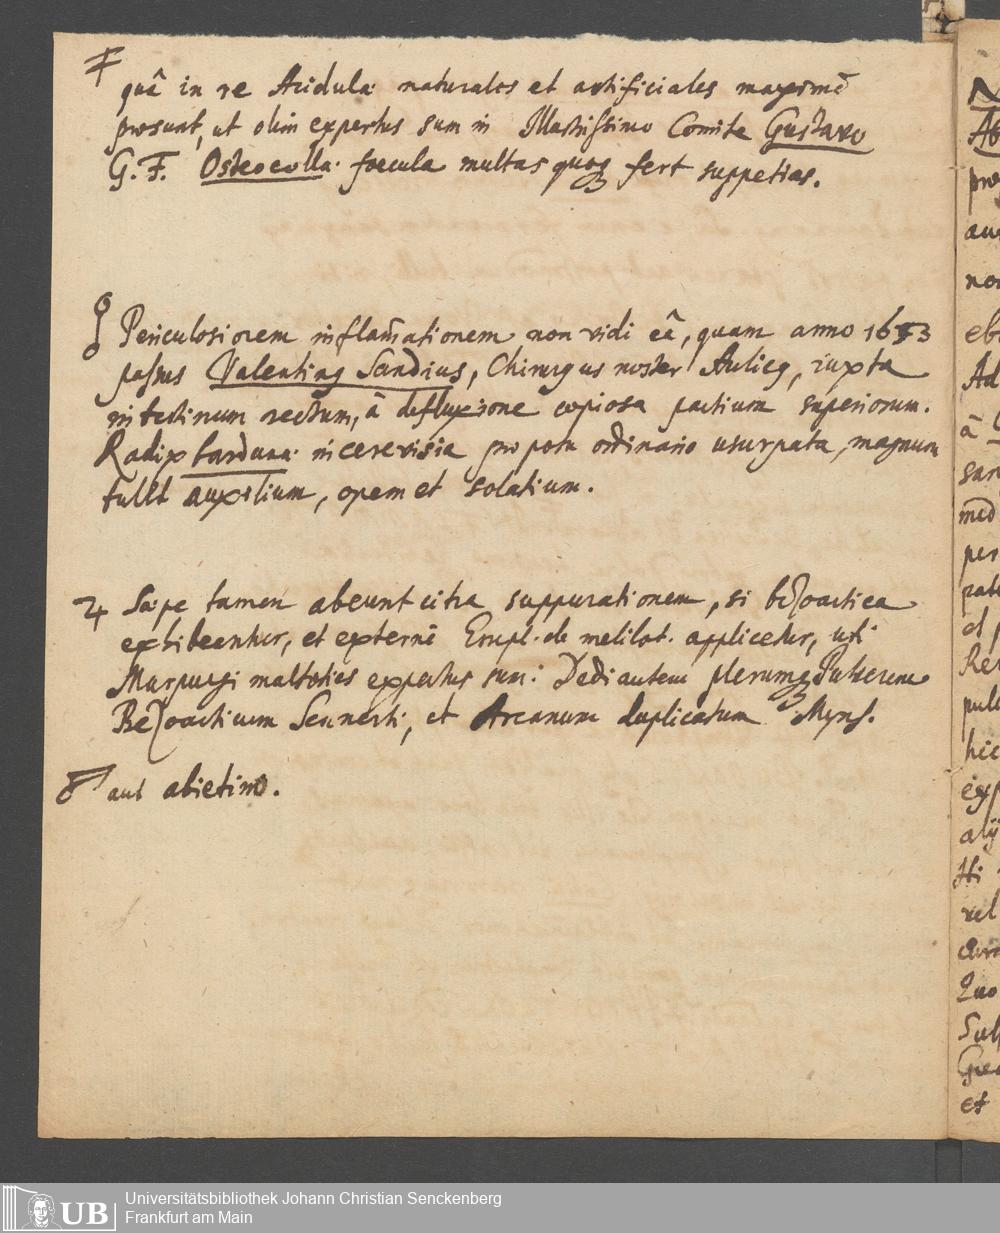 quâ in re Acidulae naturales et artificiales maximè
prosunt, ut olim expertus sum in Illustrissimo Comite Gustavo
G. F. Osteocollae foecula multas quoq fert suppetias.
Periculosiorem inflam̄ationem non vidi eâ, quam anno 1683
passus Valentinq Sandius, Chirurgus noster Aulicq, iuxta
intestinum rectum, à defluxione copiosa partium superiorum.
Radix bardanae in cerevisia pro potu ordinario usurpata, magnum
tulit auxilium, opem et solatium.
Saepe tamen abeunt citra suppurationem, si bezoartica
exhibeantur, et externè Empl. de melilot. applicetur, uti
Marpurgi multoties expertus sum: Dedi autem plerumq Pulverem
Bezoarticum Sennerti, et Arcanum duplicatum Myns.
aut abietino.
Universitätsbibliothek Johann Christian Senckenberg
UB Frankfurt am Main